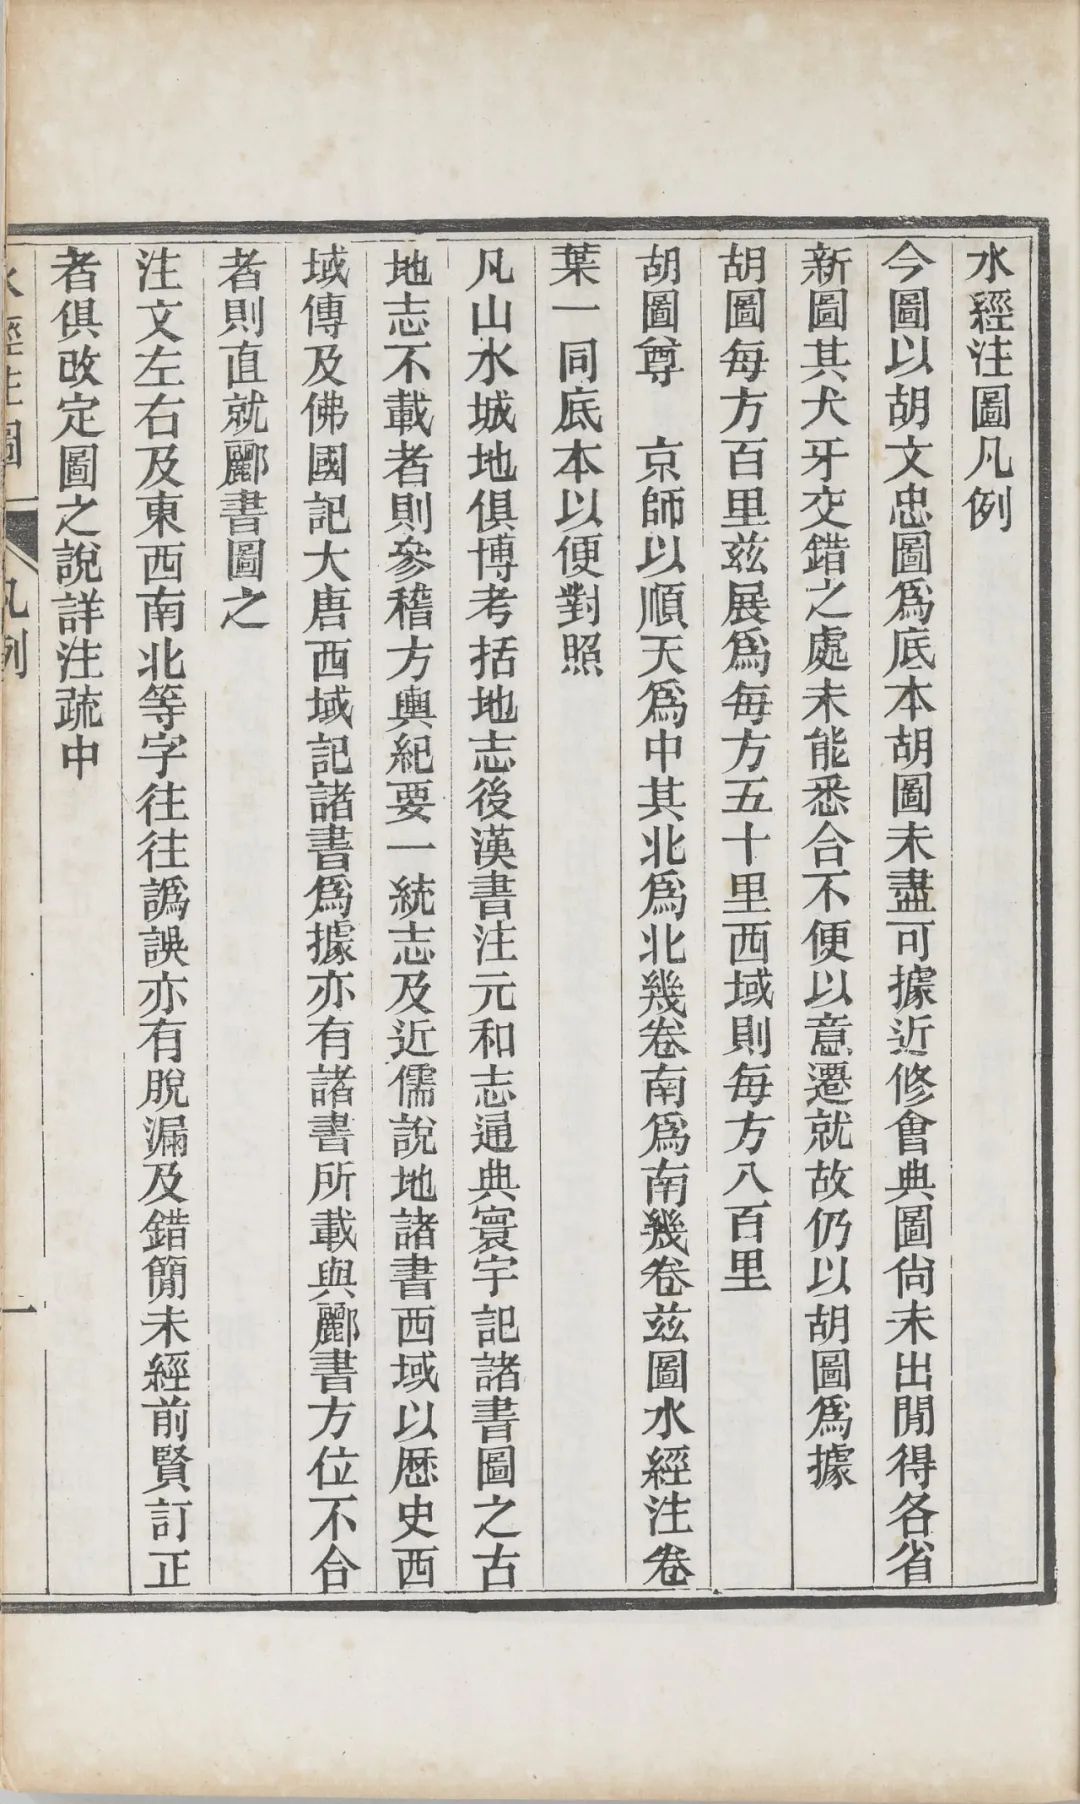 水經注圖凡例
今圖以胡文忠圖爲底本胡圖未盡可據近修會典圖尙未出閒得各省
新圖其犬牙交錯之處未能悉合不便以意遷就故仍以胡圖爲據
胡圖每方百里茲展爲每方五十里西域則每方八百里
胡圖尊　京師以順天爲中其北爲北幾卷南爲南幾卷茲圖水經注卷
葉一同底本以便對照
凡山水城地俱博考括地志後漢書注元和志通典寰宇記諸書圖之古
地志不載者則參稽方輿紀要一統志及近儒說地諸書西域以歷史西
域傳及佛國記大唐西域記諸書爲據亦有諸書所載與酈書方位不合
者則直就酈書圖之
注文左右及東西南北等字往往譌誤亦有脫漏及錯簡未經前賢訂正
者俱改定圖之說詳注疏中
水經注圖　凡例　一